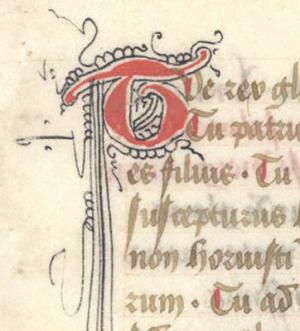 T rex gl
Tu patri
es filius · Tu
suscepturus
non horuisti
rum · Tu ad